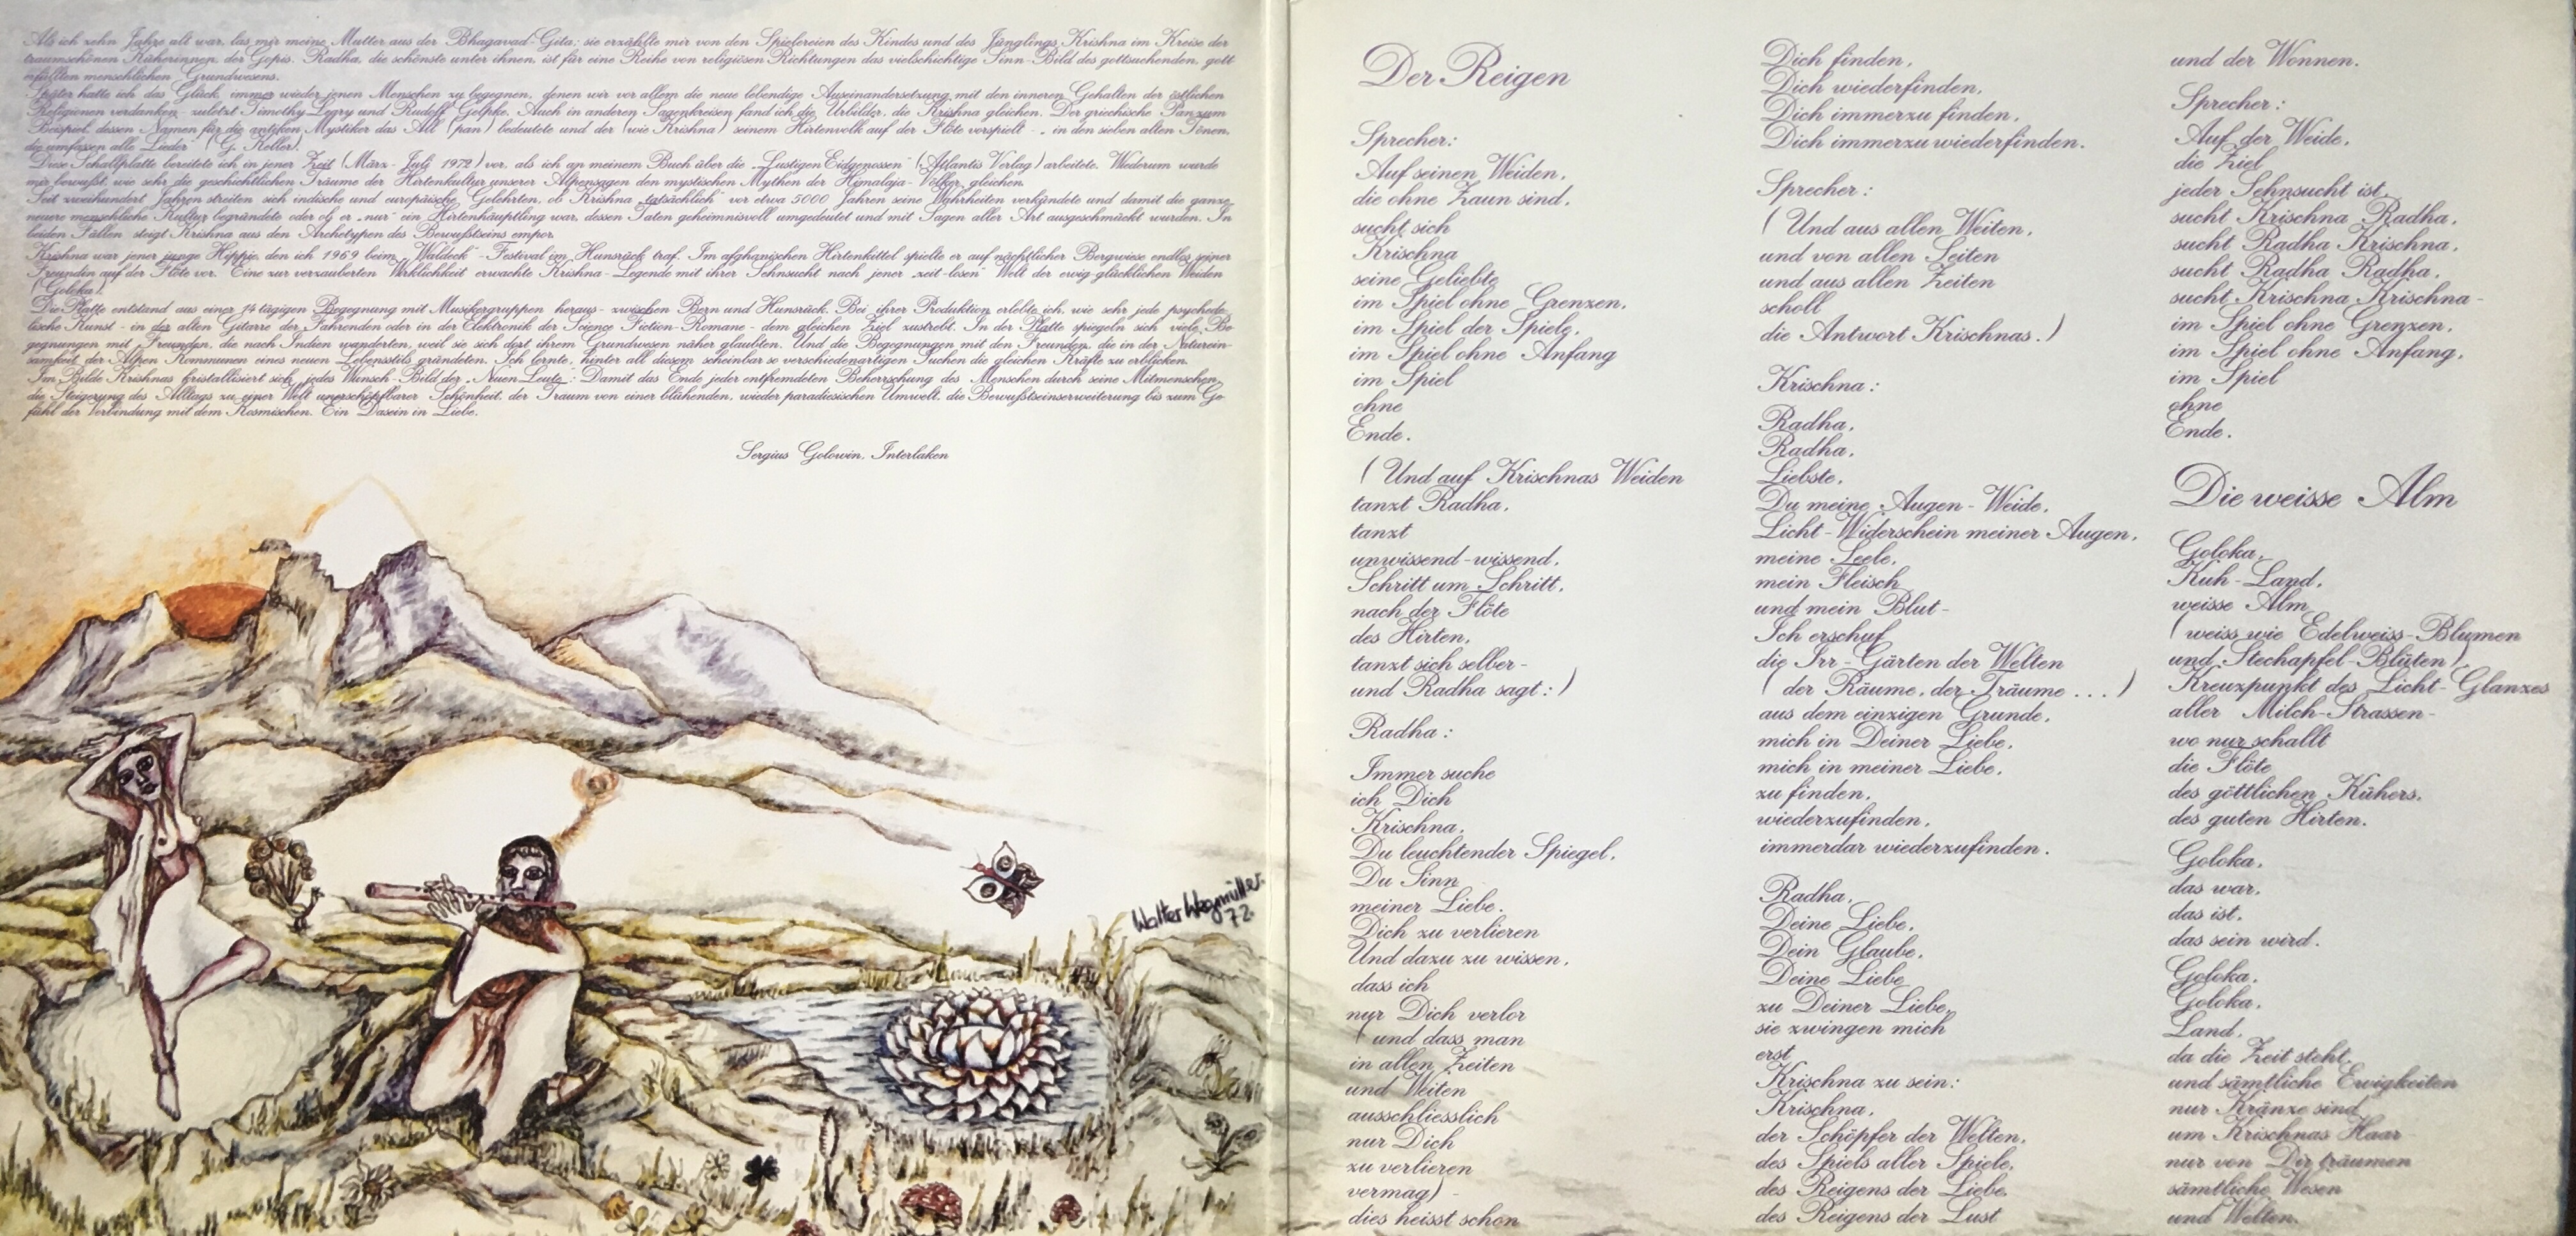 Als ich zehn Jahre alt war, las mir meine Mutter aus der Bhagavad-Gita; sie erzählte mir von den Spielereien des Kindes und des Jünglings Krishna im Kreise der
traumschönen Küherinnen, der Gopis. Radha, die schönste unter ihnen, ist für eine Reihe von religiösen Richtungen das vielschichtige Sinn-Bild des gottsuchenden, gott
erfüllten menschlichen Grundwesens.
Später hatte ich das Glück, immer wieder jenen Menschen zu begegnen, denen wir vor allem die neue lebendige Auseinandersetzung mit den inneren Gehalten der östlichen
Religionen verdanken - zuletzt Timothy Leary und Rudolf Gelpke. Auch in anderen Sagenkreisen fand ich die Urbilder, die Krishna gleichen. Der griechische Pan zum
Beispiel, dessen Namen für die antiken Mystiker das All (pan) bedeutete und der (wie Krishna) seinem Hirtenvolk auf der Flöte vorspielt - „in den sieben alten Tönen,
die umfassen alle Lieder" (G. Keller).
Diese Schallplatte bereitete ich in jener Zeit (März - Juli 1972) vor, als ich an meinem Buch über die „Lustigen Eidgenossen" (Atlantis Verlag) arbeitete. Wiederum wurde
mir bewußt, wie sehr die geschichtlichen Träume der Hirtenkultur unserer Alpensagen den mystischen Mythen der Himalaja-Völker gleichen.
Seit zweihundert Jahren streiten sich indische und europäische Gelehrten, ob Krishna „tatsächlich" vor etwa 5000 Jahren seine Wahrheiten verkündete und damit die ganze
neuere menschliche Kultur begründete oder ob er „nur" ein Hirtenhäuptling war, dessen Taten geheimnisvoll umgedeutet und mit Sagen aller Art ausgeschmückt wurden. In
beiden Fällen steigt Krishna aus den Archetypen des Bewußtseins empor.
Krishna war jener junge Hippie, den ich 1969 beim „Waldeck"-Festival im Hunsrück traf. Im afghanischen Hirtenkittel spielte er auf nächtlicher Bergwiese endlos seiner
Freundin auf der Flöte vor. Eine zur verzauberten Wirklichkeit erwachte Krishna-Legende mit ihrer Sehnsucht nach jener „zeit-losen" Welt der ewig-glücklichen Weiden
(Goloka).
Die Platte entstand aus einer 14 tägigen Begegnung mit Musikergruppen heraus - zwischen Bern und Hunsrück. Bei ihrer Produktion erlebte ich, wie sehr jede psychede-
lische Kunst - in der alten Gitarre der Fahrenden oder in der Elektronik der Science Fiction-Romane - dem gleichen Ziel zustrebt. In der Platte spiegeln sich viele Be-
gegnungen mit Freunden, die nach Indien wanderten, weil sie sich dort ihrem Grundwesen näher glaubten. Und die Begegnungen mit den Freunden, die in der Naturein-
samkeit der Alpen Kommunen eines neuen Lebensstils gründeten. Ich lernte, hinter all diesem scheinbar so verschiedenartigen Suchen die gleichen Kräfte zu erblicken.
Im Bilde Krishnas kristallisiert sich jedes Wunsch-Bild der „Neuen Leute": Damit das Ende jeder entfremdeten Beherrschung des Menschen durch seine Mitmenschen,
die Steigerung des Alltags zu einer Welt unerschöpfbarer Schönheit, der Traum von einer blühenden, wieder paradiesischen Umwelt, die Bewußtseinserweiterung bis zum Ge-
fühl der Verbindung mit dem Kosmischen. Ein Dasein in Liebe.
Sergius Golowin, Interlaken
Walter Wegmüller
72.
Der Reigen
Sprecher:
Auf seinen Weiden,
die ohne Zaun sind,
sucht sich
Krischna
seine Geliebte
im Spiel ohne Grenzen,
im Spiel der Spiele,
im Spiel ohne Anfang
im Spiel
ohne
Ende.
(Und auf Krischnas Weiden
tanzt Radha,
tanzt
unwissend-wissend,
Schritt um Schritt,
nach der Flöte
des Hirten,
tanzt sich selber-
und Radha sagt:)
Radha:
Immer suche
ich Dich
Krischna,
Du leuchtender Spiegel,
Du Sinn
meiner Liebe.
Dich zu verlieren
Und dazu zu wissen,
dass ich
nur Dich verlor
(und dass man
in allen Zeiten
und Weiten
ausschliesslich
nur Dich
zu verlieren
vermag) -
dies heisst schon
Dich finden,
Dich wiederfinden,
Dich immerzu finden,
Dich immerzu wiederfinden.
Sprecher:
(Und aus allen Weiten,
und von allen Seiten
und aus allen Zeiten
scholl
die Antwort Krischnas.)
Krischna:
Radha,
Radha,
Liebste,
Du meine Augen-Weide,
Licht-Widerschein meiner Augen,
meine Seele,
mein Fleisch
und mein Blut-
Ich erschuf
die Irr-Gärten der Welten
(der Räume, der Träume ...)
aus dem einzigen Grunde,
mich in Deiner Liebe,
mich in meiner Liebe,
zu finden,
wiederzufinden,
immerdar wiederzufinden.
Radha,
Deine Liebe,
Dein Glaube,
Deine Liebe
zu Deiner Liebe,
sie zwingen mich
erst
Krischna zu sein:
Krischna,
der Schöpfer der Welten,
des Spiels aller Spiele,
des Reigens der Liebe,
des Reigens der Lust
und der Wonnen.
Sprecher:
Auf der Weide,
die Ziel
jeder Sehnsucht ist,
sucht Krischna Radha,
sucht Radha Krischna,
sucht Radha Radha,
sucht Krischna Krischna-
im Spiel ohne Grenzen,
im Spiel ohne Anfang,
im Spiel
ohne
Ende.
Die weisse Alm
Goloka,
Kuh-Land,
weisse Alm
(weiss wie Edelweiss-Blumen
und Stechapfel-Blüten)
Kreuzpunkt des Licht-Glanzes
aller Milch-Strassen-
wo nur schallt
die Flöte
des göttlichen Kühers,
des guten Hirten.
Goloka,
das war,
das ist,
das sein wird.
Goloka,
Goloka,
Land,
da die Zeit steht,
und sämtliche Ewigkeiten
nur Kränze sind
um Krischnas Haar-
nur von Dir träumen
sämtliche Wesen
und Welten.